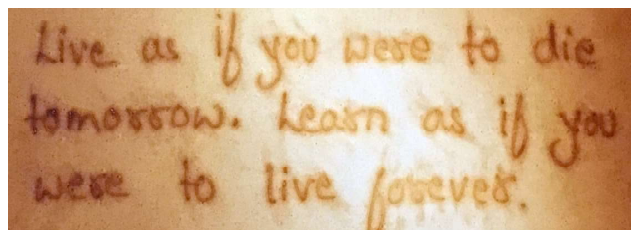 Live as if you were to die
tomorrow. Learn as if you
were to live forever.